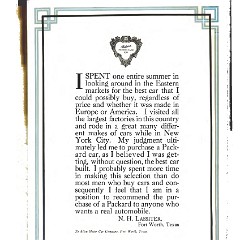 I SPENT one entire summer in
looking around in the Eastern
markets for the best car that I
could possibly buy, regardless of
price and whether it was made in
Europe or America. I visited all
the largest factories in this country
and rode in a great many differ-
ent makes of cars while in New
York City. My judgment ulti-
mately led me to purchase a Pack-
ard car, as I believed I was get-
ting, without question, the best car
built. I probably spent more time
in making this selection than do
most men who buy cars and conse-
quently I feel that I am in a
position to recommend the pur-
chase of a Packard to anyone who
wants a real automobile.
N. H. LASSITER,
Fort Worth, Texas
Motor Car Company, Fort Worth, Texas